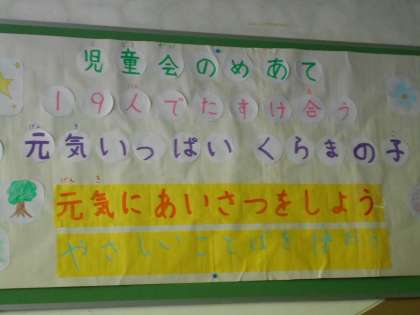 児童会のめあて
19人でたすけ合う
元気いっぱいくらまの子
元気にあいさつをしよう
やさしいことばを使おう